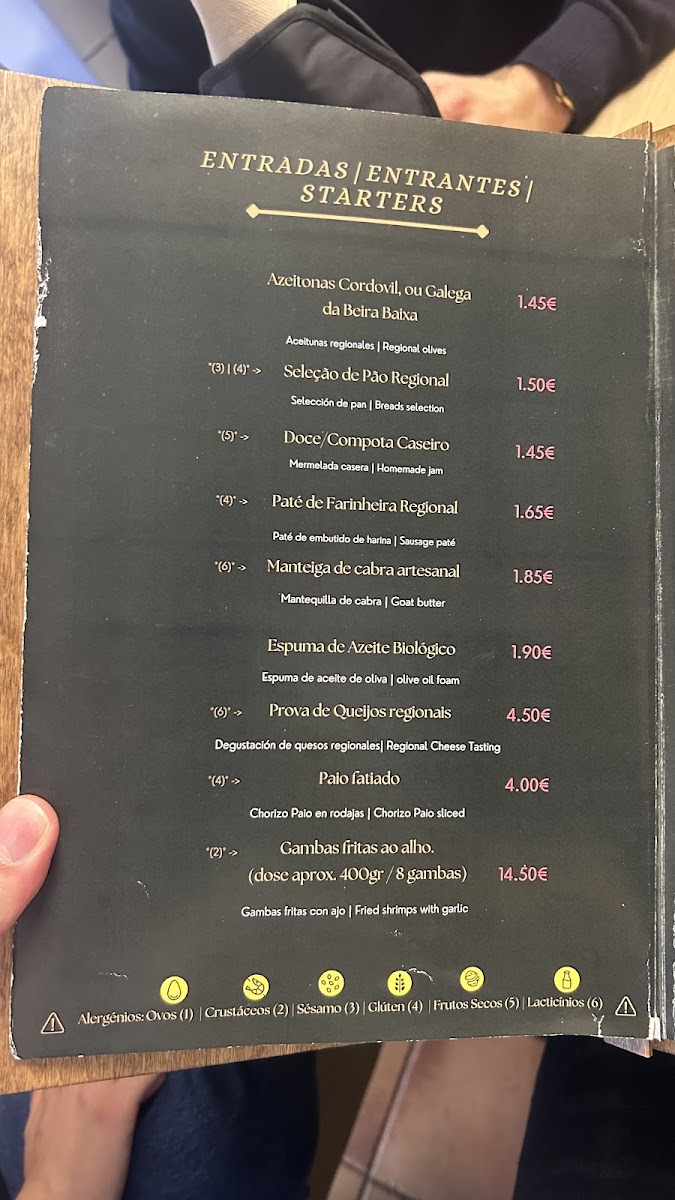 ENTRADAS | ENTRANTES |
STARTERS
Azeitonas Cordovil, ou Galega
da Beira Baixa 1.45€
Aceitunas regionales | Regional olives
"(3) | (4)" -> Seleção de Pão Regional 1.50€
Selección de pan | Breads selection
"(5)" -> Doce/Compota Caseiro 1.45€
Mermelada casera | Homemade jam
"(4)" -> Paté de Farinheira Regional 1.65€
Paté de embutido de harina | Sausage paté
"(6)" -> Manteiga de cabra artesanal 1.85€
Mantequilla de cabra | Goat butter
Espuma de Azeite Biológico 1.90€
Espuma de aceite de oliva | olive oil foam
"(6)" -> Prova de Queijos regionais 4.50€
Degustación de quesos regionales| Regional Cheese Tasting
"(4)" -> Paio fatiado 4.00€
Chorizo Paio en rodajas | Chorizo Paio sliced
"(2)" -> Gambas fritas ao alho.
(dose aprox. 400gr / 8 gambas) 14.50€
Gambas fritas con ajo | Fried shrimps with garlic
Alergénios: Ovos (1) | Crustáceos (2) | Sésamo (3) | Glúten (4) | Frutos Secos (5) | Lacticínios (6)